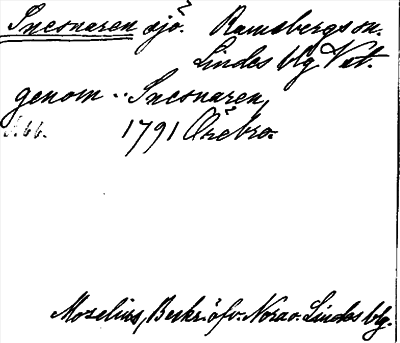 Snesnaren sjö. Ramsbergs sn.
Lindes blg Vstm.
genom .. Snesnaren,
S. 66. 1791 Örebro.
Moselius, Beskr. öfv. Nora o. Lindes blg.